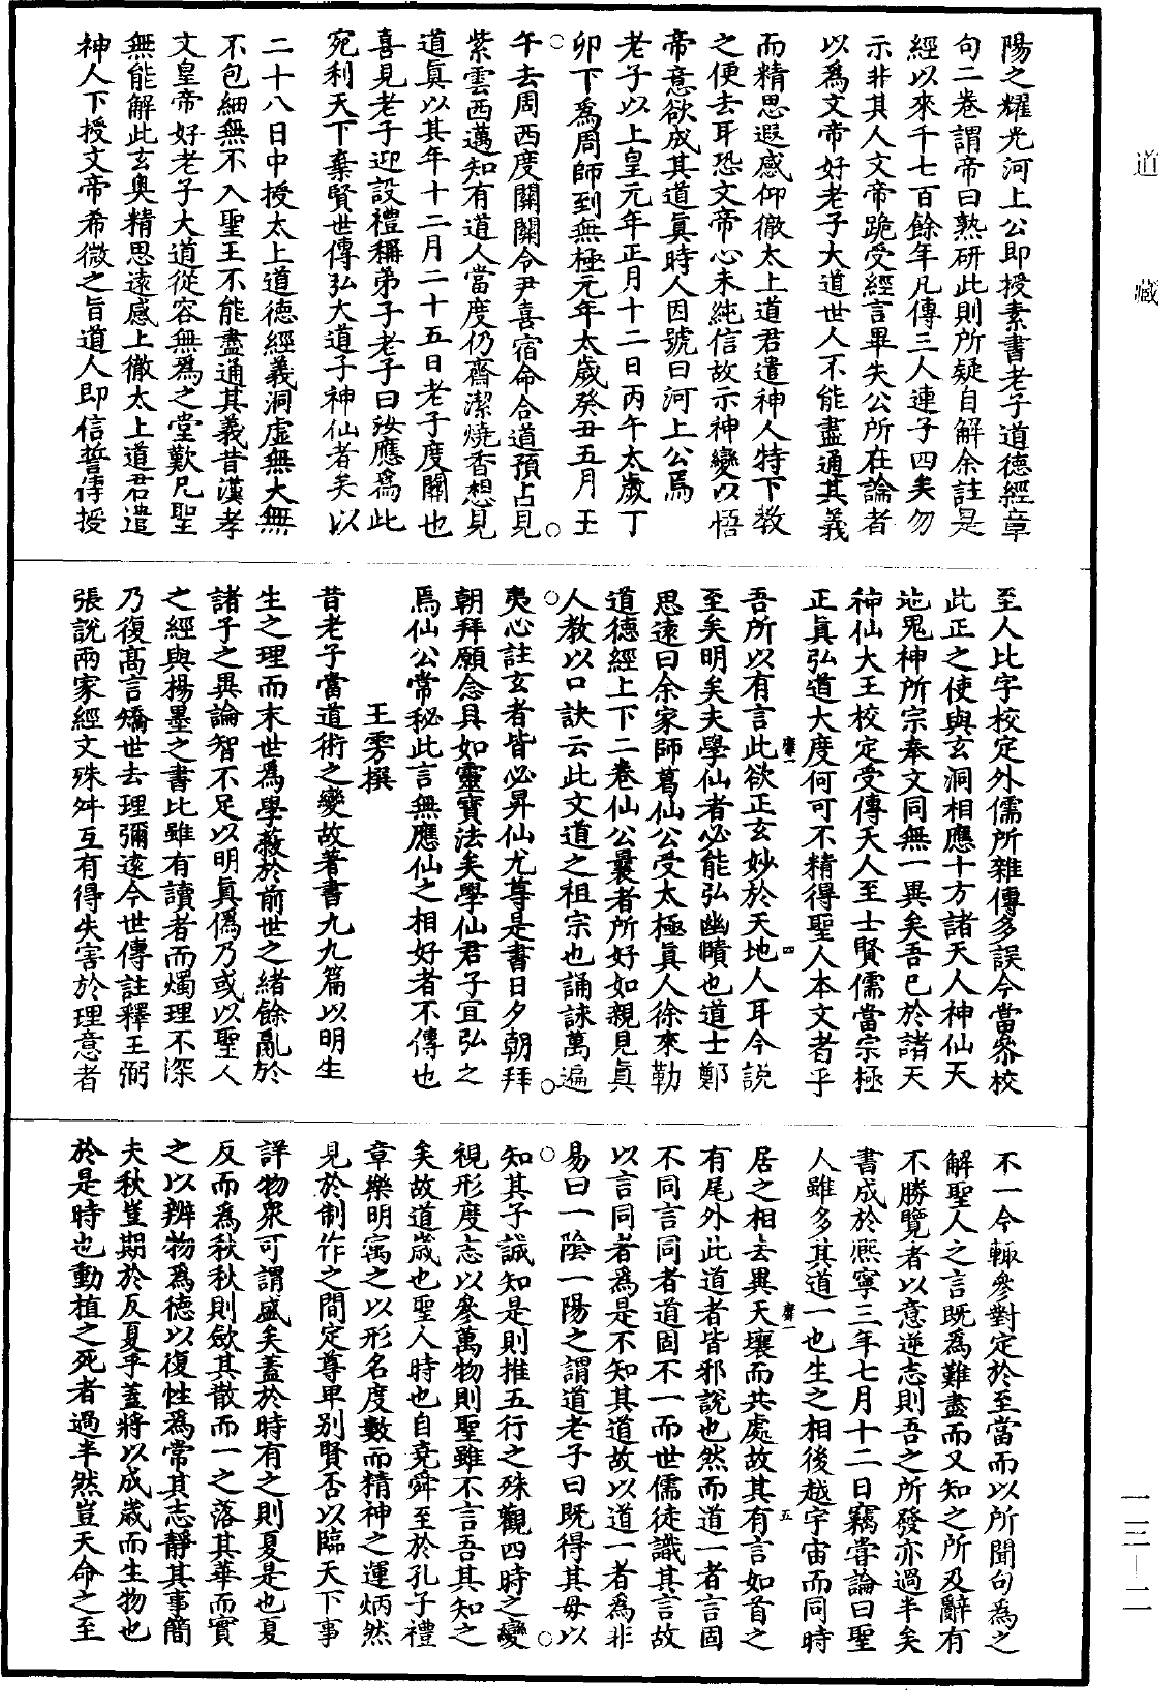 道藏
陽之耀光河上公即授素書老子道德經章
句二卷謂帝曰熟研此則所疑自解余註是
經以來千七百餘年凡傳三人連子四矣勿
示非其人文帝跪受經言畢失公所在論者
以爲文帝好老子大道世人不能盡通其義
而精思遐感仰徹太上道君遣神人特下教
之便去耳恐文帝心未純信故示神變以悟
帝意欲成其道真時人因號曰河上公焉
老子以上皇元年正月十二日丙午太歲丁
卯下爲周師到無極元年太歲癸丑五月壬
午去周西度關關令尹喜宿命合道預占見
紫雲西邁知有道人當度仍齋潔燒香想見
道真以其年十二月二十五日老子度關也
喜見老子迎設禮稱弟子老子曰汝應爲此
宛利天下棄賢世傳弘大道子神仙者矣以
二十八日中授太上道德經義洞虛無大無
不包細無不入聖王不能盡通其義昔漢孝
文皇帝好老子大道從容無爲之堂歎凡聖
無能解此玄奥精思遠感上徹太上道君遣
神人下授文帝希微之旨道人即信誓傳授
至人比字校定外儒所雜傳多誤今當叅校
此正之使與玄洞相應十方諸天人神仙天
地鬼神所宗奉文同無一異矣吾已於諸天
神仙大王校定受傳天人至士賢儒當宗極
正真弘道大度何可不精得聖人本文者乎
吾所以有言此欲正玄妙於天地人耳今説
至矣明矣夫學仙者必能弘幽賾也道士鄭
思遠曰余家師葛仙公受太極真人徐來勒
道德經上下二卷仙公曩者所好如親見真
人教以口訣云此文道之祖宗也誦詠萬遍
夷心註玄者皆必昇仙尤尊是書日夕朝拜
朝拜願念具如靈寶法矣學仙君子宜弘之
焉仙公常秘此言無應仙之相好者不傳也
王雱撰
昔老子當道術之變故著書九九篇以明生
生之理而末世爲學蔽於前世之緒餘亂於
諸子之異論智不足以明真僞乃或以聖人
之經與揚墨之書比雖有讀者而燭理不深
乃復高言矯世去理彌遠今世傳註釋王弼
張説兩家經文殊舛互有得失害於理意者
不一今輙參對定於至當而以所聞句爲之
解聖人之言既爲難盡而又知之所及辭有
不勝覽者以意逆志則吾之所發亦過半矣
書成於熈寧三年七月十二日竊甞論曰聖
人雖多其道一也生之相後越宇宙而同時
居之相去異天壤而共處故其有言如首之
有尾外此道者皆邪説也然而道一者言固
不同言同者道固不一而世儒徒識其言故
以言同者爲是不知其道故以道一者爲非
易曰一陰一陽之謂道老子曰既得其母以
知其子誠知是則推五行之殊觀四時之變
視形度志以參萬物則聖雖不言吾其知之
矣故道歳也聖人時也自堯舜至於孔子禮
章樂明寓之以形名度數而精神之運炳然
見於制作之間定尊卑别賢否以臨天下事
詳物衆可謂盛矣蓋於時有之則夏是也夏
反而爲秋秋則斂其散而一之落其華而實
之以辨物爲德以復性爲常其志靜其事簡
夫秋豈期於反夏乎蓋將以成歳而生物也
於是時也動植之死者過半然豈天命之至
一三—二